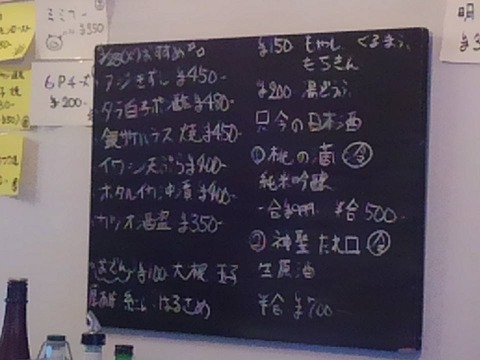 ミミガー
¥350
6Pチーズ
¥200-
おすすめ
アジ ¥450-
タラ白子ポン酢 ¥480-
銀ザケハラス焼 ¥450-
イワシ天ぷら ¥400-
ホタルイカ沖漬 ¥400-
カツオ酒盗 ¥350-
おでん ¥100 大根 玉子
はるさめ
¥150 もやし くるまふ
もちきん
¥200 湯どうふ
只今の日本酒
① 桃の滴 冷
純米吟醸
一合 半合 500-
② 神聖 たれ口 冷
生原酒
半合 ¥700-